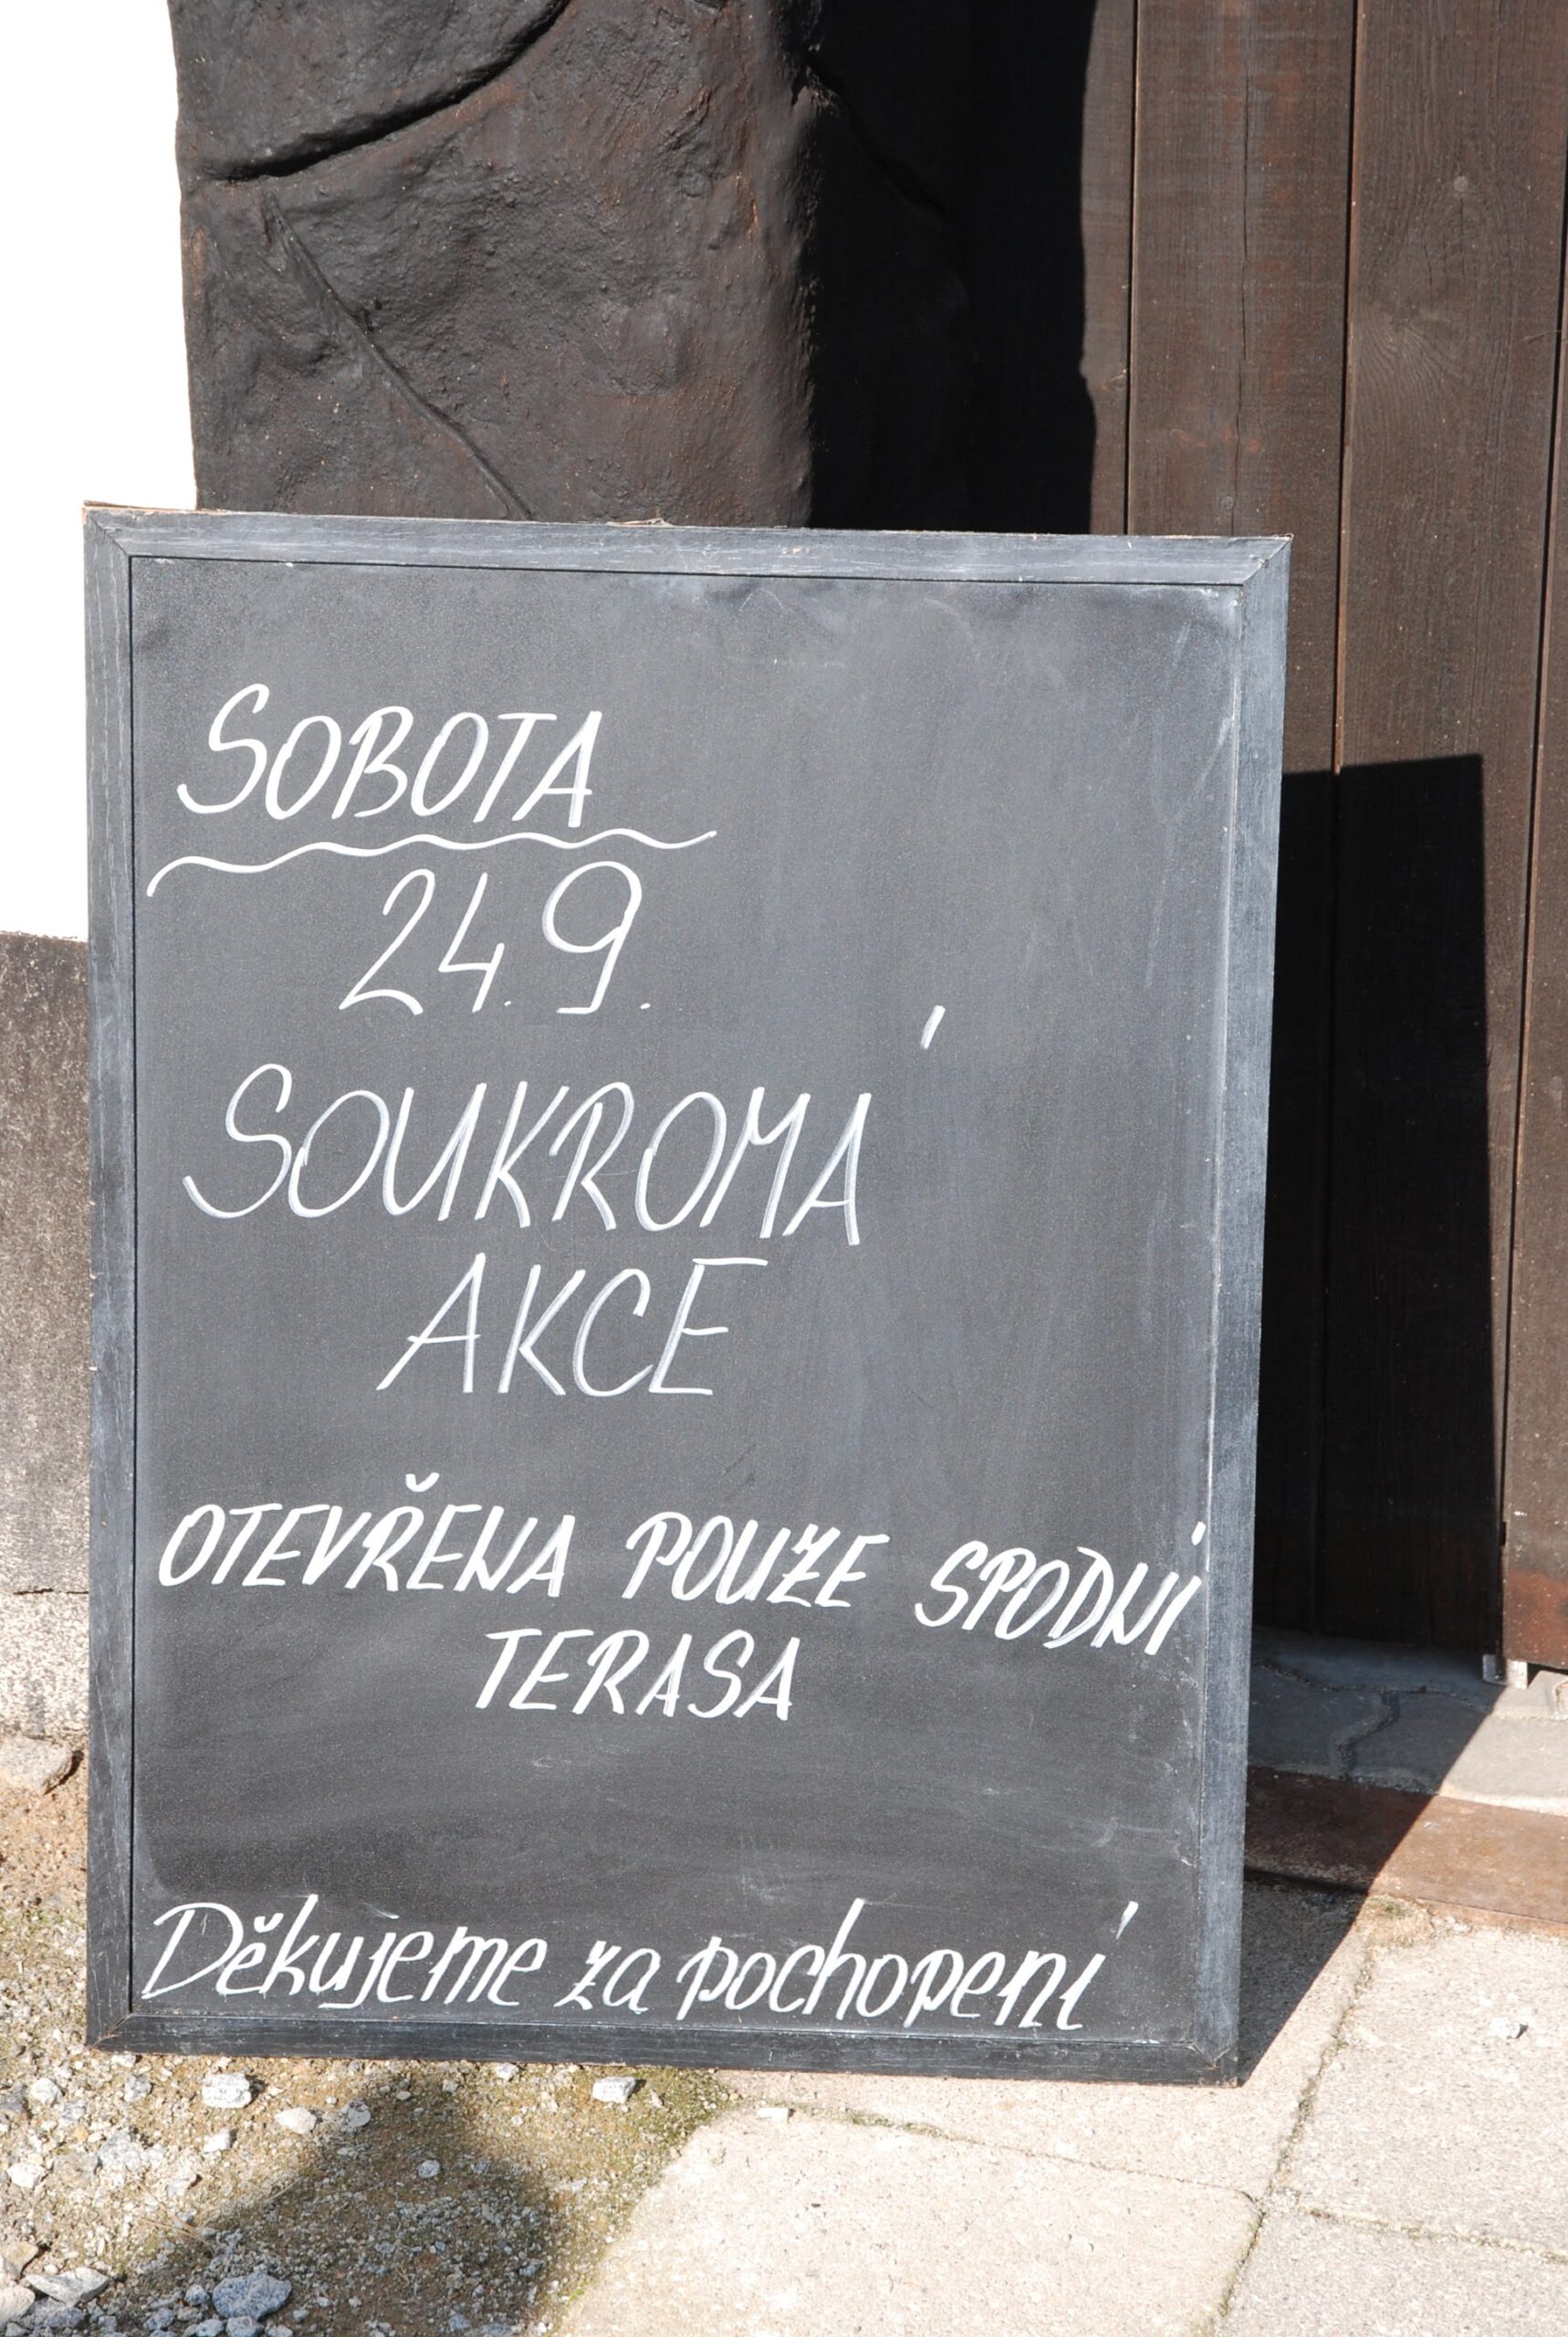 SOBOTA
24.9.
SOUKROMÁ
AKCE
OTEVŘENA POUZE SPODNÍ
TERASA
Děkujeme za pochopení